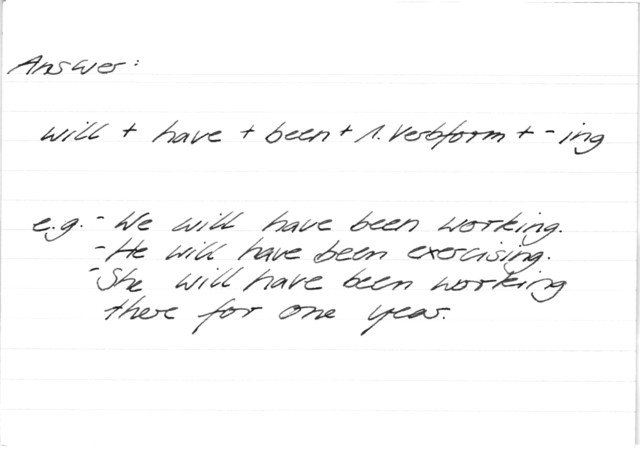 Answer:
will + have + been + 1. Verbform + -ing
e.g. - We will have been working.
- He will have been exercising.
- She will have been working
there for one year.